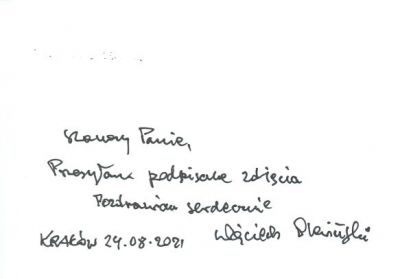 Szanowny Panie,
Przesyłam podpisane zdjęcia
Pozdrawiam serdecznie
KRAKÓW 24.08.2021 Wojciech